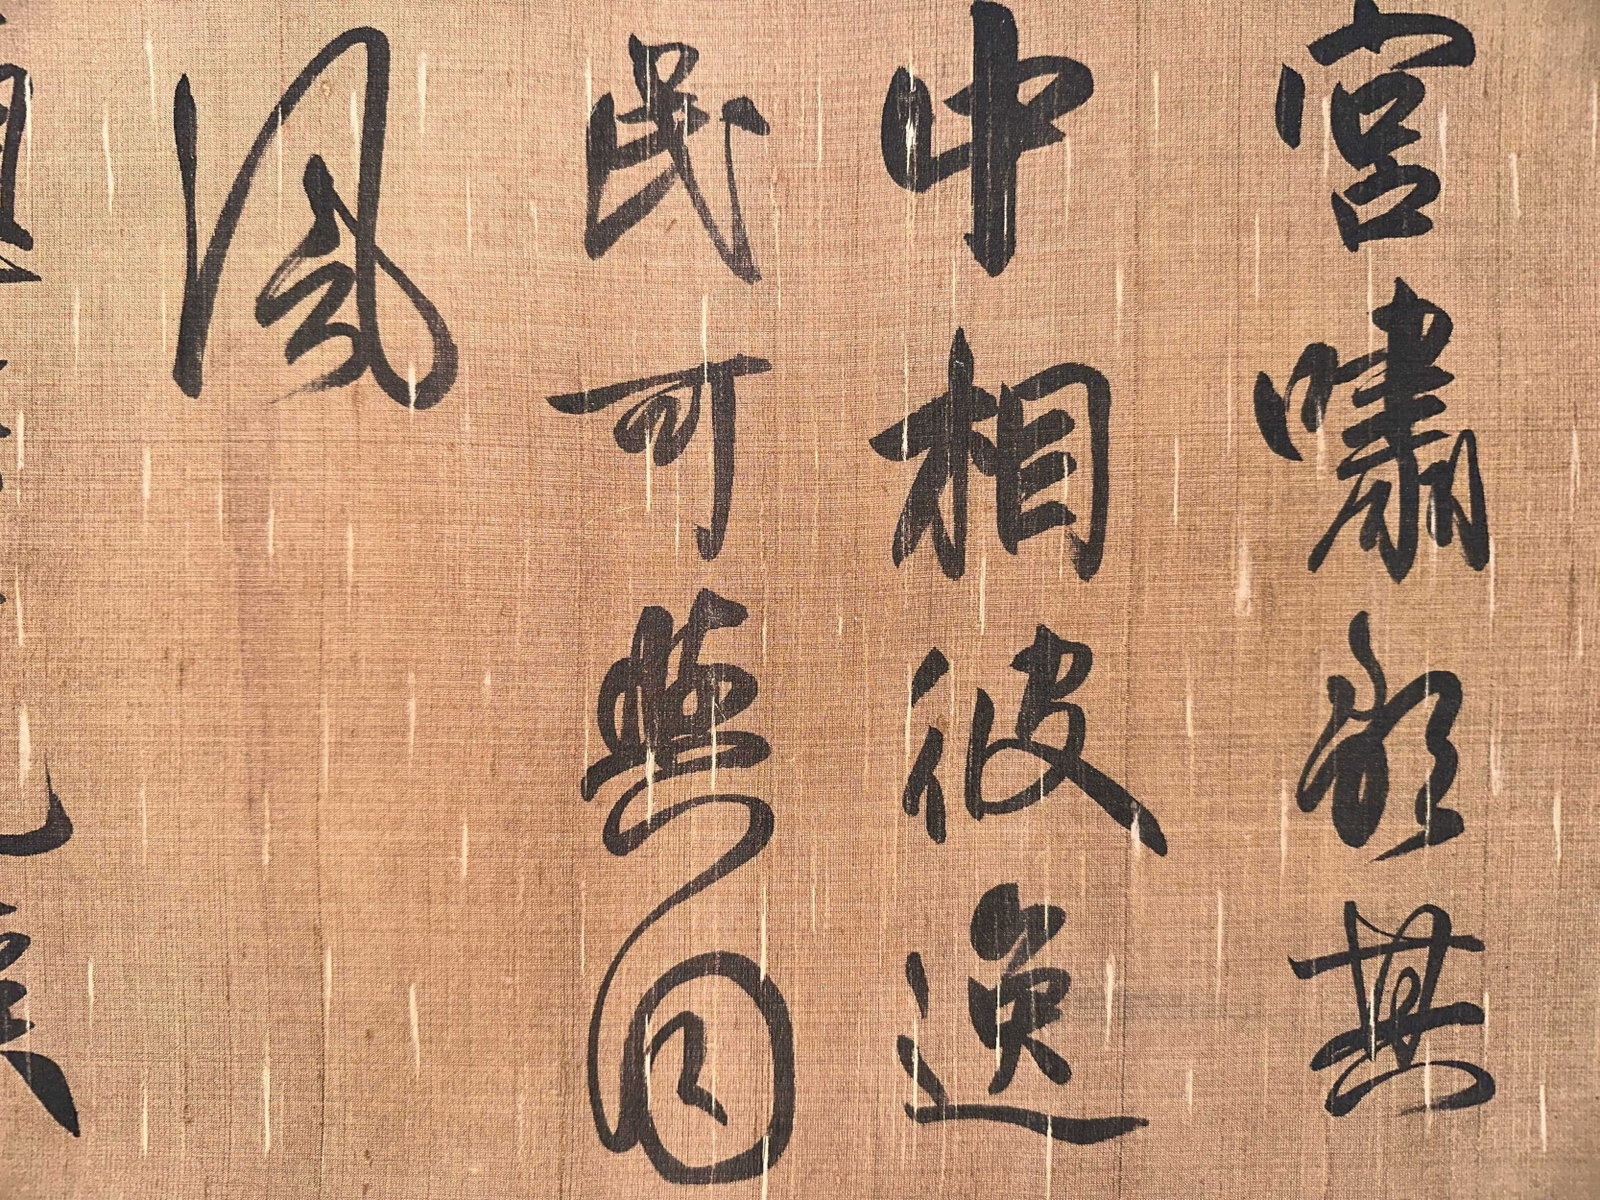 宮嘯歌無
中相彼逸
民可與同
風